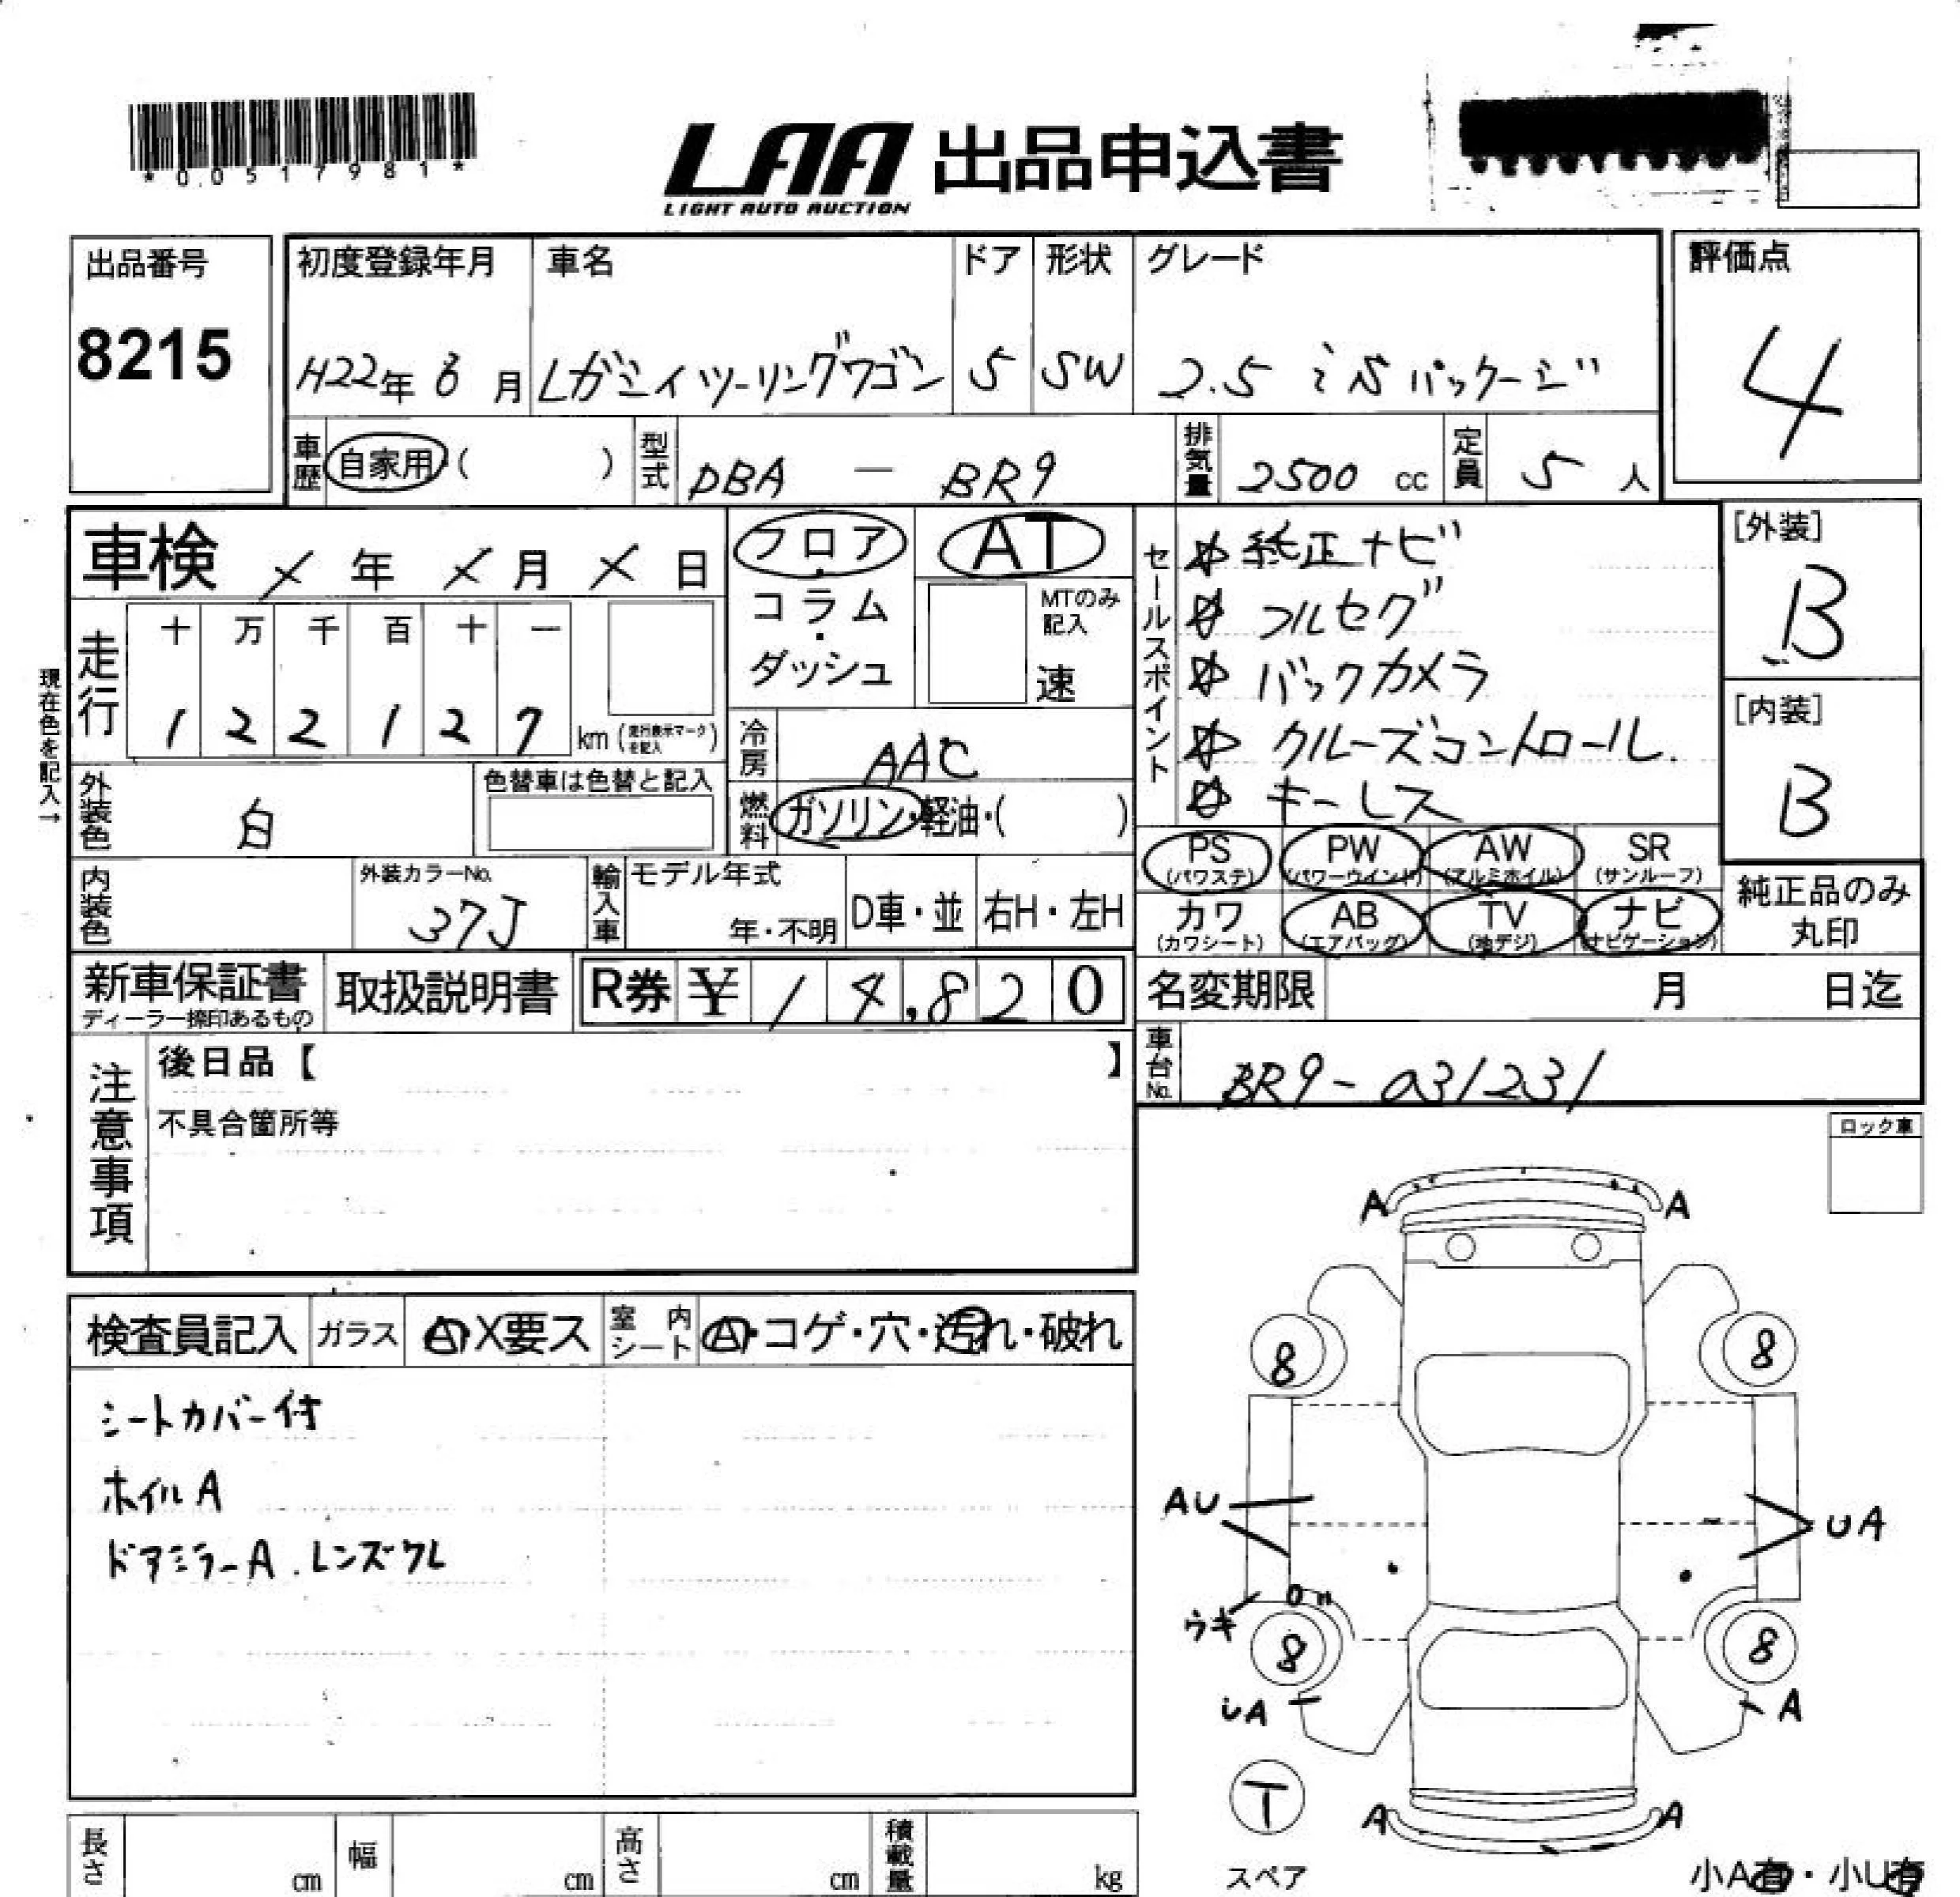 *0.0517981*
LAA 出品申込書
LIGHT AUTO AUCTION
出品番号
8215
初度登録年月 車名 ドア 形状 グレード
H22年 6 月 Lガシィツーリングワゴン 5 SW 2.5 i S パッケージ
評価点
4
車歴 自家用・( ) 型式 DBA - BR9 排気量 2500 cc 定員 5 人
車検 年 月 日
フロア・コラム・ダッシュ
AT
MTのみ記入
速
現在色を記入→
走行 十 万 千 百 十 一
1 2 2 1 2 7 km (走行表示マークを記入)
冷房 AAC
外装色 白
色替車は色替と記入
燃料 ガソリン・軽油・( )
セールスポイント
純正ナビ
フルセグ
バックカメラ
クルーズコントロール.
キーレス
[外装]
B
[内装]
B
PS (パワステ) PW (パワーウインド) AW (アルミホイル) SR (サンルーフ)
カワ (カワシート) AB (エアバッグ) TV (地デジ) ナビ (ナビゲーション)
純正品のみ丸印
内装色 外装カラーNo. 37J 輸入車 モデル年式 年・不明 D車・並 右H・左H
新車保証書 ディーラー捺印あるもの 取扱説明書 R券 ¥ 1 4,8 2 0
名変期限 月 日迄
車台No. BR9-031231
注意事項
後日品【 】
不具合箇所等
ロック車
検査員記入 ガラス A・X要ス 室内シート A・コゲ・穴・汚れ・破れ
シートカバー付
ホイルA
ドアミラーA.レンズクレ
A A
8 8
AU UA
ウキ
8 8
UA A
T
スペア
A A
小A有・小U有
長さ cm 幅 cm 高さ cm 積載量 kg